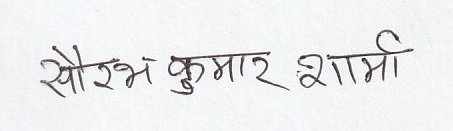 सौरभ कुमार शर्मा